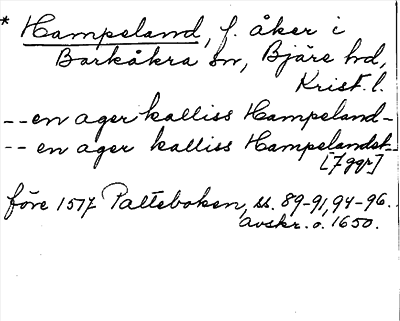 * Hampeland, f. åker i
Barkåkra sn, Bjäre hd,
Krist. l.
-- en ager kalliss Hampeland -
-- en ager kalliss Hampelandst --
[7 ggr]
före 1517 Palteboken, ss. 89-91, 94-96.
Avskr. o. 1650.